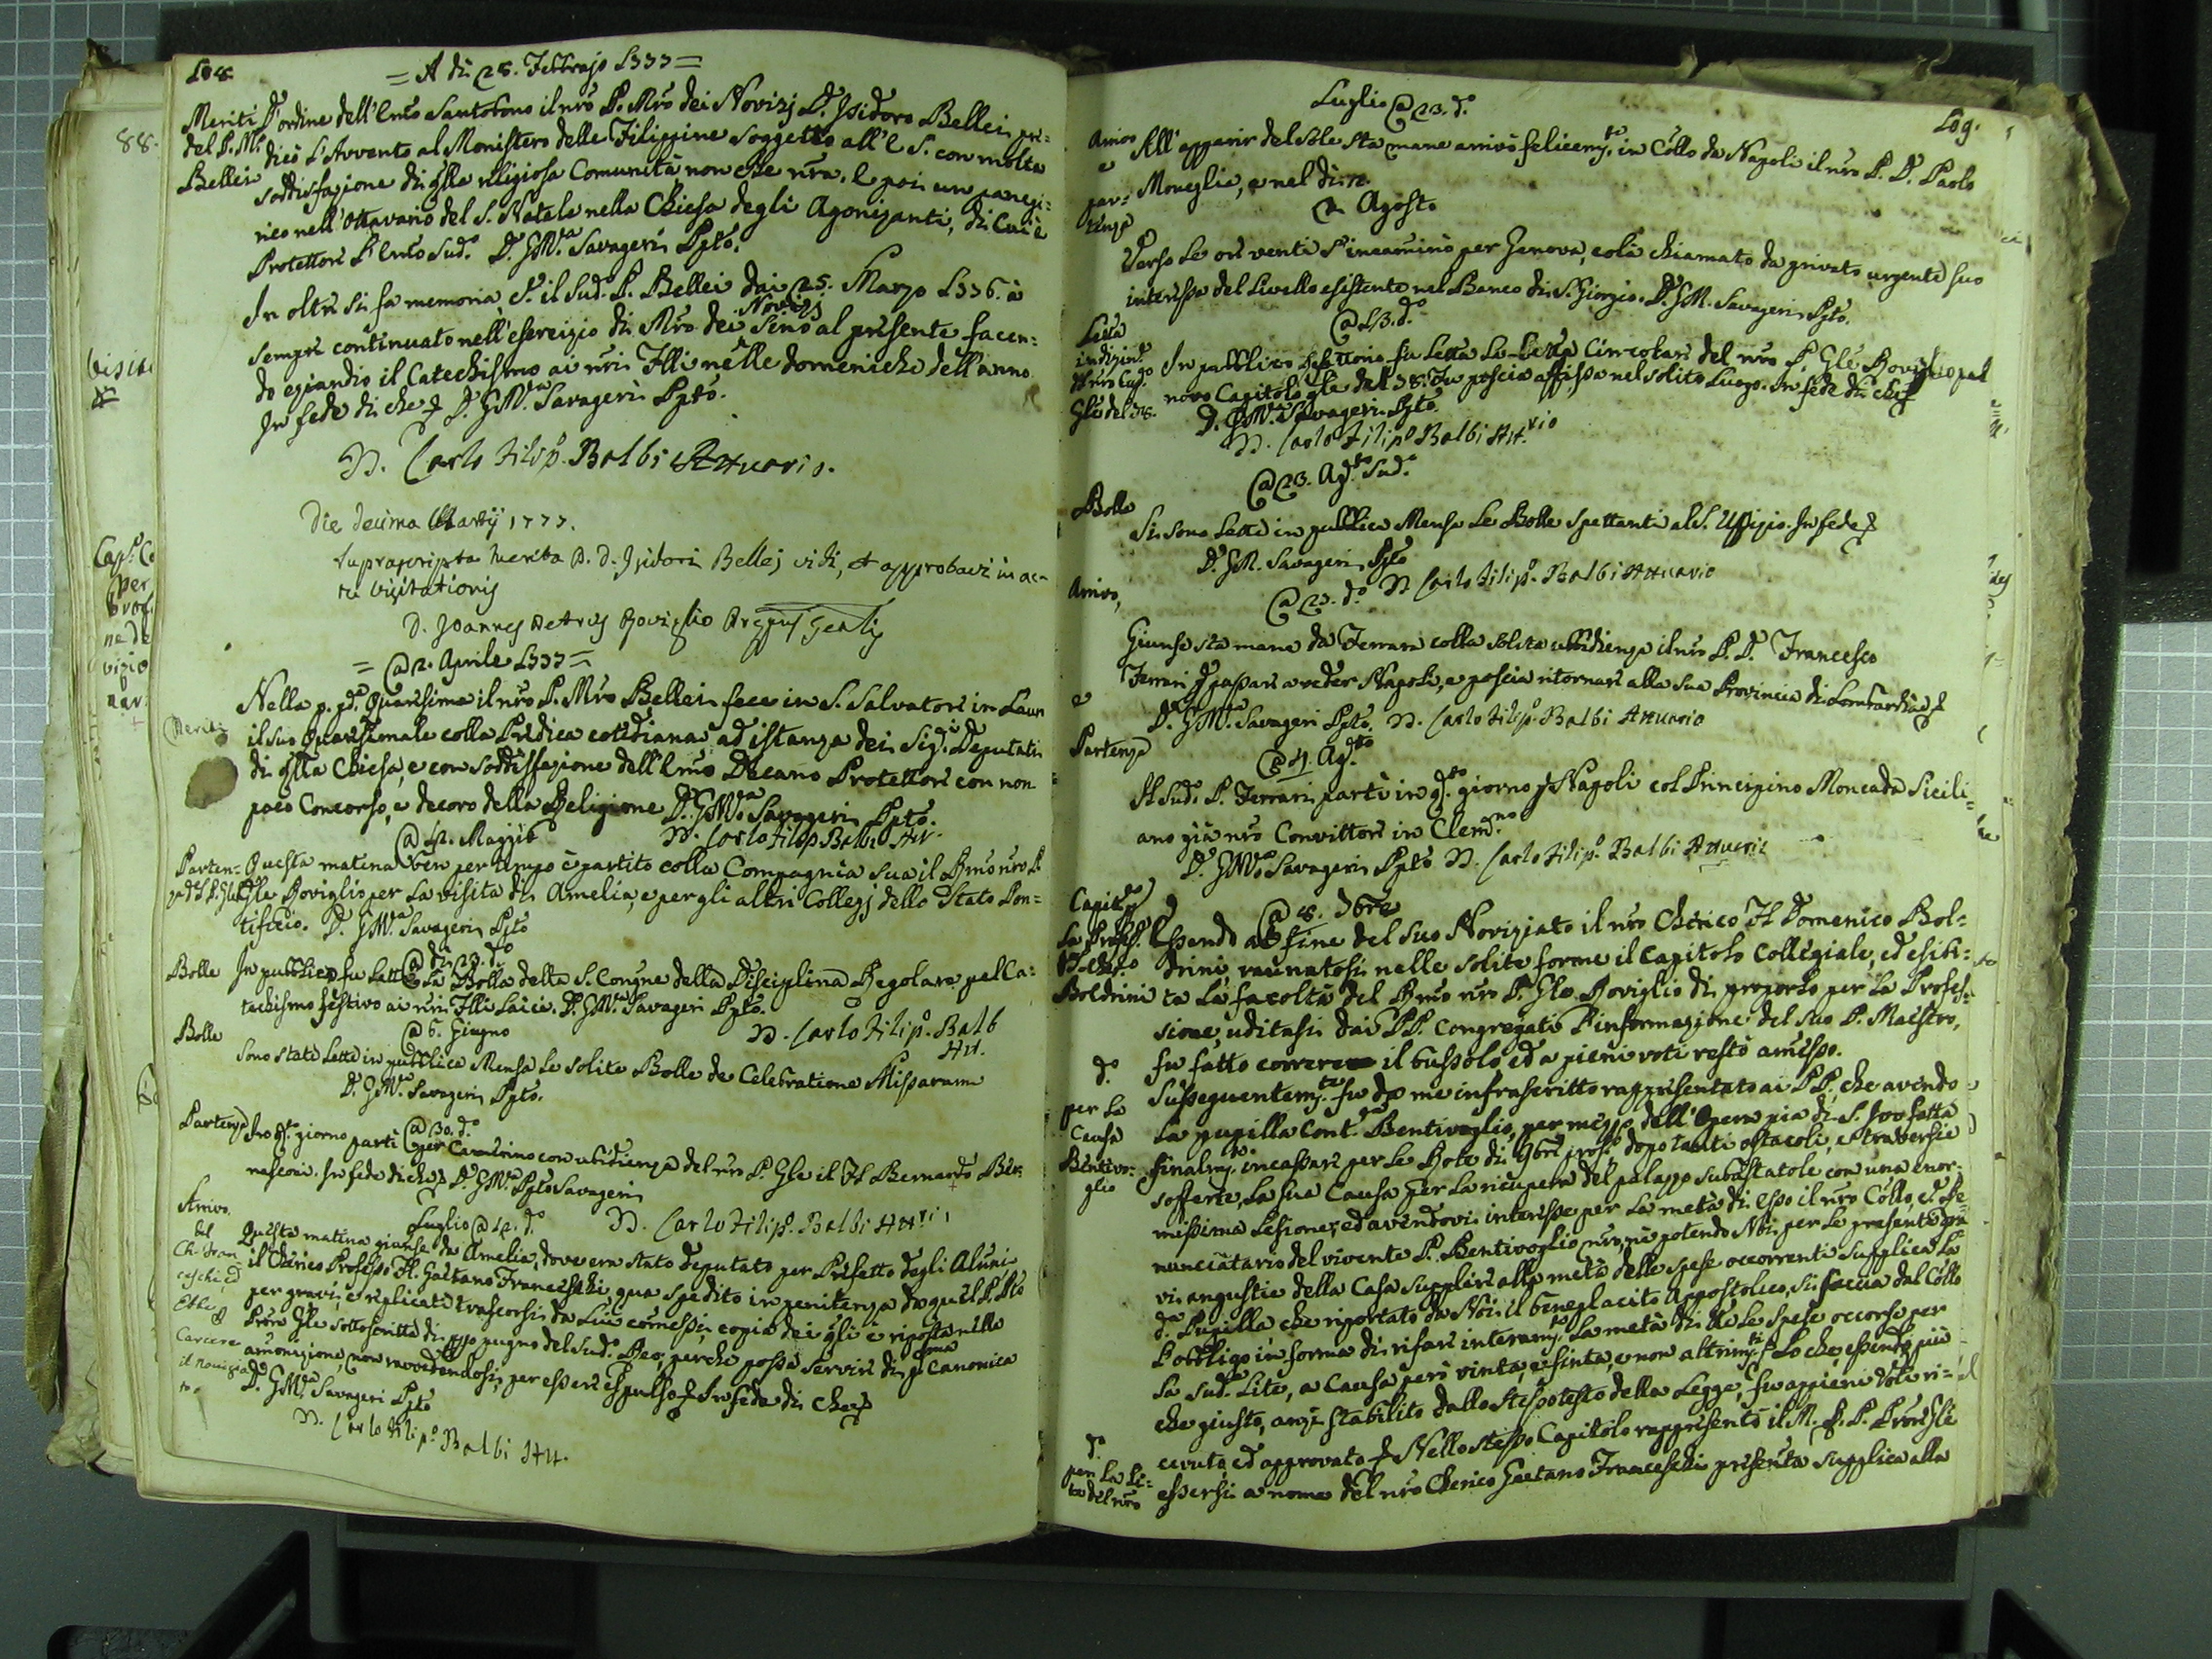 108.
= A di 25. Febbrajo 1777 =
Meriti D'ordine dell'Emo Santobono il nro P. Mro dei Novizj D. Isidoro Bellei pre=
del P. Mro dicò l'Avvento al Monistero delle Filippine soggetto all'E. S. con molta
Bellei soddisfazione di qlla religiosa Comunità non che nra, e poi un panegi=
rico nell'Ottavario del S. Natale nella Chiesa degli Agonizanti, di cui è
Protettore l'Emo Sud.o D. GM.a Savageri Ppto.
In oltre si fa memoria, che il Sud. P. Bellei dai 25. Marzo 1776. à
sempre continuato nell'esercizio di Mro dei Novizj sino al presente facen=
do eziandio il Catechismo ai nri Flli nelle domeniche dell'anno.
In fede di che D. GM.a Savageri Ppto.
D. Carlo Filip.o Balbi Attuario.
Die decima Martij 1777.
Suprascripta merita P. D. Isidori Bellej vidi, et approbavi in ac=
tu visitationis
D. Joannes Petrus Roviglio Prepus Genlis
= @ 2. Aprile 1777 =
Meriti
Nella p. pd.a Quaresima il nro P. Mro Bellei fece in S. Salvatore in Laun
il suo Quaresimale colla Predica cotidiana ad istanza dei Sig.i Deputati
di qlla Chiesa, e con soddisfazione dell'Emo Decano Protettore con non
poco Concorso, e decoro della Religione D. GM.a Savageri Ppto.
D. Carlo Filip.o Balbi Att.
@ 12. Maggio
Parten= Questa matina ben per tempo è partito colla Compagnia sua il Rmo nro P.
za del P. Gle Gle Roviglio per la visita di Amelia, e per gli altri Collegj dello Stato Pon=
tificio. D. GM.a Savageri Ppto
@ di 23. d.o
Bolle In pubblico fu letta la Bolla della S. Congne della Disciplina Regolare pel Ca=
techismo festivo ai nri Flli Laici. D. GM.a Savageri Ppto.
D. Carlo Filip.o Balb
Att.
@ 6. Giugno
Bolle
Sono state lette in pubblica Mensa le solite Bolle de Celebratione Missarum
D. GM.a Savageri Ppto.
@ 30. d.o
Partenza In qto giorno partì per Camerino con ubidienza del nro P. Gle il Fl Bernardo Ber=
nasconi. In fede di che D. GM.a Ppto Savageri
D. Carlo Filip.o Balbi Att.rio
Luglio @ 12. d.o
Arrivo
del
Ch. Fran
ceschi, ed
Carcere
il noviziato
Questa matina giunse da Amelia, dove era stato deputato per Prefetto degli Alunni
il Chierico Professo Fl. Gaetano Franceschi, qua spedito in penitenza da quel P. Ppto
per gravi, e replicati trascorsi da lui comessi, copia dei qli è riposta nella
Prora Gle sottoscritta di ppo pugno del sud.o Reo, perchè possa servire di pma Canonica
amonizione, non ravvedendosi, per essere espulso. In fede di che
D. GM.a Savageri Ppto
D. Carlo Filip.o Balbi Att.
109.
Luglio @ 23. d.o
Arrivo
e
par=
tenza
All'apparir del Sole sta mane arrivò felicem.te in Collo da Napoli il nro P. D. Paolo
Moneglia, e nel di 12.
Agosto
Verso le ore venti s'incaminò per Genova, colà chiamato da privato urgente suo
interesse del Livello esistente nel Banco di S. Giorgio. D. GM. Savageri Ppto.
@ 13. d.o
In pubblico Refettorio fu letta la Circolare del nro P. Gle Roviglio pel
novo Capitolo Gle del 78. Fu poscia affissa nel solito Luogo. In fede di che
D. GM.a Savageri Ppto.
D. Carlo Filip.o Balbi Att.rio
@ 23. Ag.to Sud.o
Bolle
Si sono lette in pubblica Mensa le Bolle spettanti al S. Uffizio. In fede
D. GM. Savageri Ppto
D. Carlo Filip.o Balbi Attuario
Arrivo,
Giunse sta mane da Ferrara colla solita ubbidienza il nro P. D. Francesco
Ferrari p passare a veder Napoli, e poscia ritornare alla sua Provincia di Lombardia
e
D. GM.a Savageri Ppto. D. Carlo Filip.o Balbi Attuario
Partenza
Il Sud.o P. Ferrari partì in qto giorno p Napoli col Principino Moncada Sicili=
ano già nro Convittore in Clem.no
D. GM.a Savageri Ppto D. Carlo Filip.o Balbi Attuario
@ 8. 7bre
Capit.o p
la Profess.e
Boldrini
Essendo al fine del suo Noviziato il nro Chierico Fl Domenico Bol=
drini, raunatosi nelle solite forme il Capitolo Collegiale, ed esibi=
ta la facoltà del Rmo nro P. Gle Roviglio di proporlo per la Profes=
sione, uditasi dai PP. Congregati l'informazione del suo P. Maestro,
fu fatto correre il bussolo, ed a pieni voti restò amesso.
d.o
per la
Causa
Bentivo=
glio
Susseguentem.te fu da me infrascritto rappresentato ai PP. che avendo
la pupilla Cont.a Bentivoglio, per mezzo dell'Opera pia di S. Ivo fatta
finalm.te incassare per le Rote di 9bre pross.o dopo tanti ostacoli, e traversie
sofferte, la sua Causa per la ricupera del palazzo subastatole con una enor=
missima Lesione; ed avendovi interesse per la metà di esso il nro Collo, che Re=
nunciatario del vivente P. Bentivoglio nro, nè potendo Noi per le presenti gra
vi angustie della Casa supplire alla metà delle spese occorrenti supplica la
d.a Pupilla, che riportato da Noi il beneplacito Appostolico, si faccia dal Collo
l'obbligo in forma di rifare interam.te la metà di tte le spese occorse per
la sud.a Lite, a Causa però vinta, e finita, e non altrim.ti. Lo che essendo più
che giusto, anzi stabilito dallo stesso testo della Legge, fu appieni voti ri=
cevuto, ed approvato. Nello stesso Capitolo rappresentò il M. R. P. Prore Gle
d.o
per la Li=
te del nro
essersi a nome del nro Chierico Gaetano Franceschi presentata supplica alla